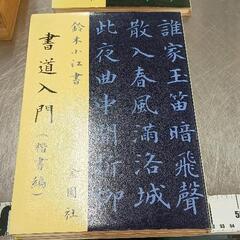 誰家玉笛暗飛聲
散入春風滿洛城
此夜曲中聞折柳
鈴木小江書
金園社
書道入門(楷書編)